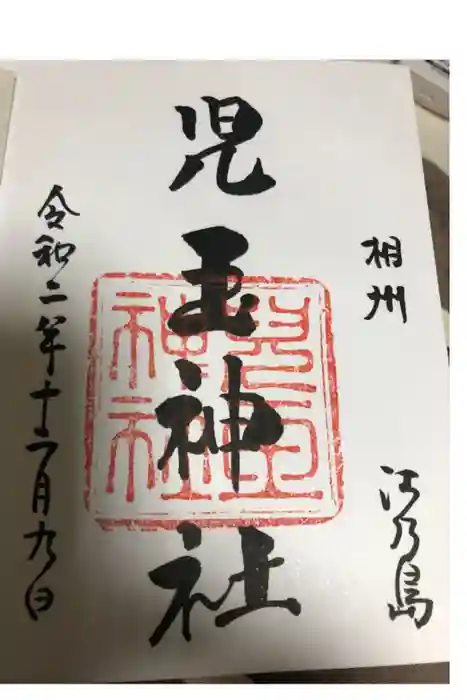 相州 江乃島
児玉神社
児玉
神社
令和二年十二月九日